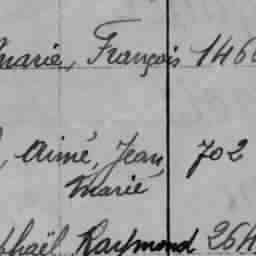 marie, François 146
, Aimé, Jean, 702
Marie
phaël Raymond 264